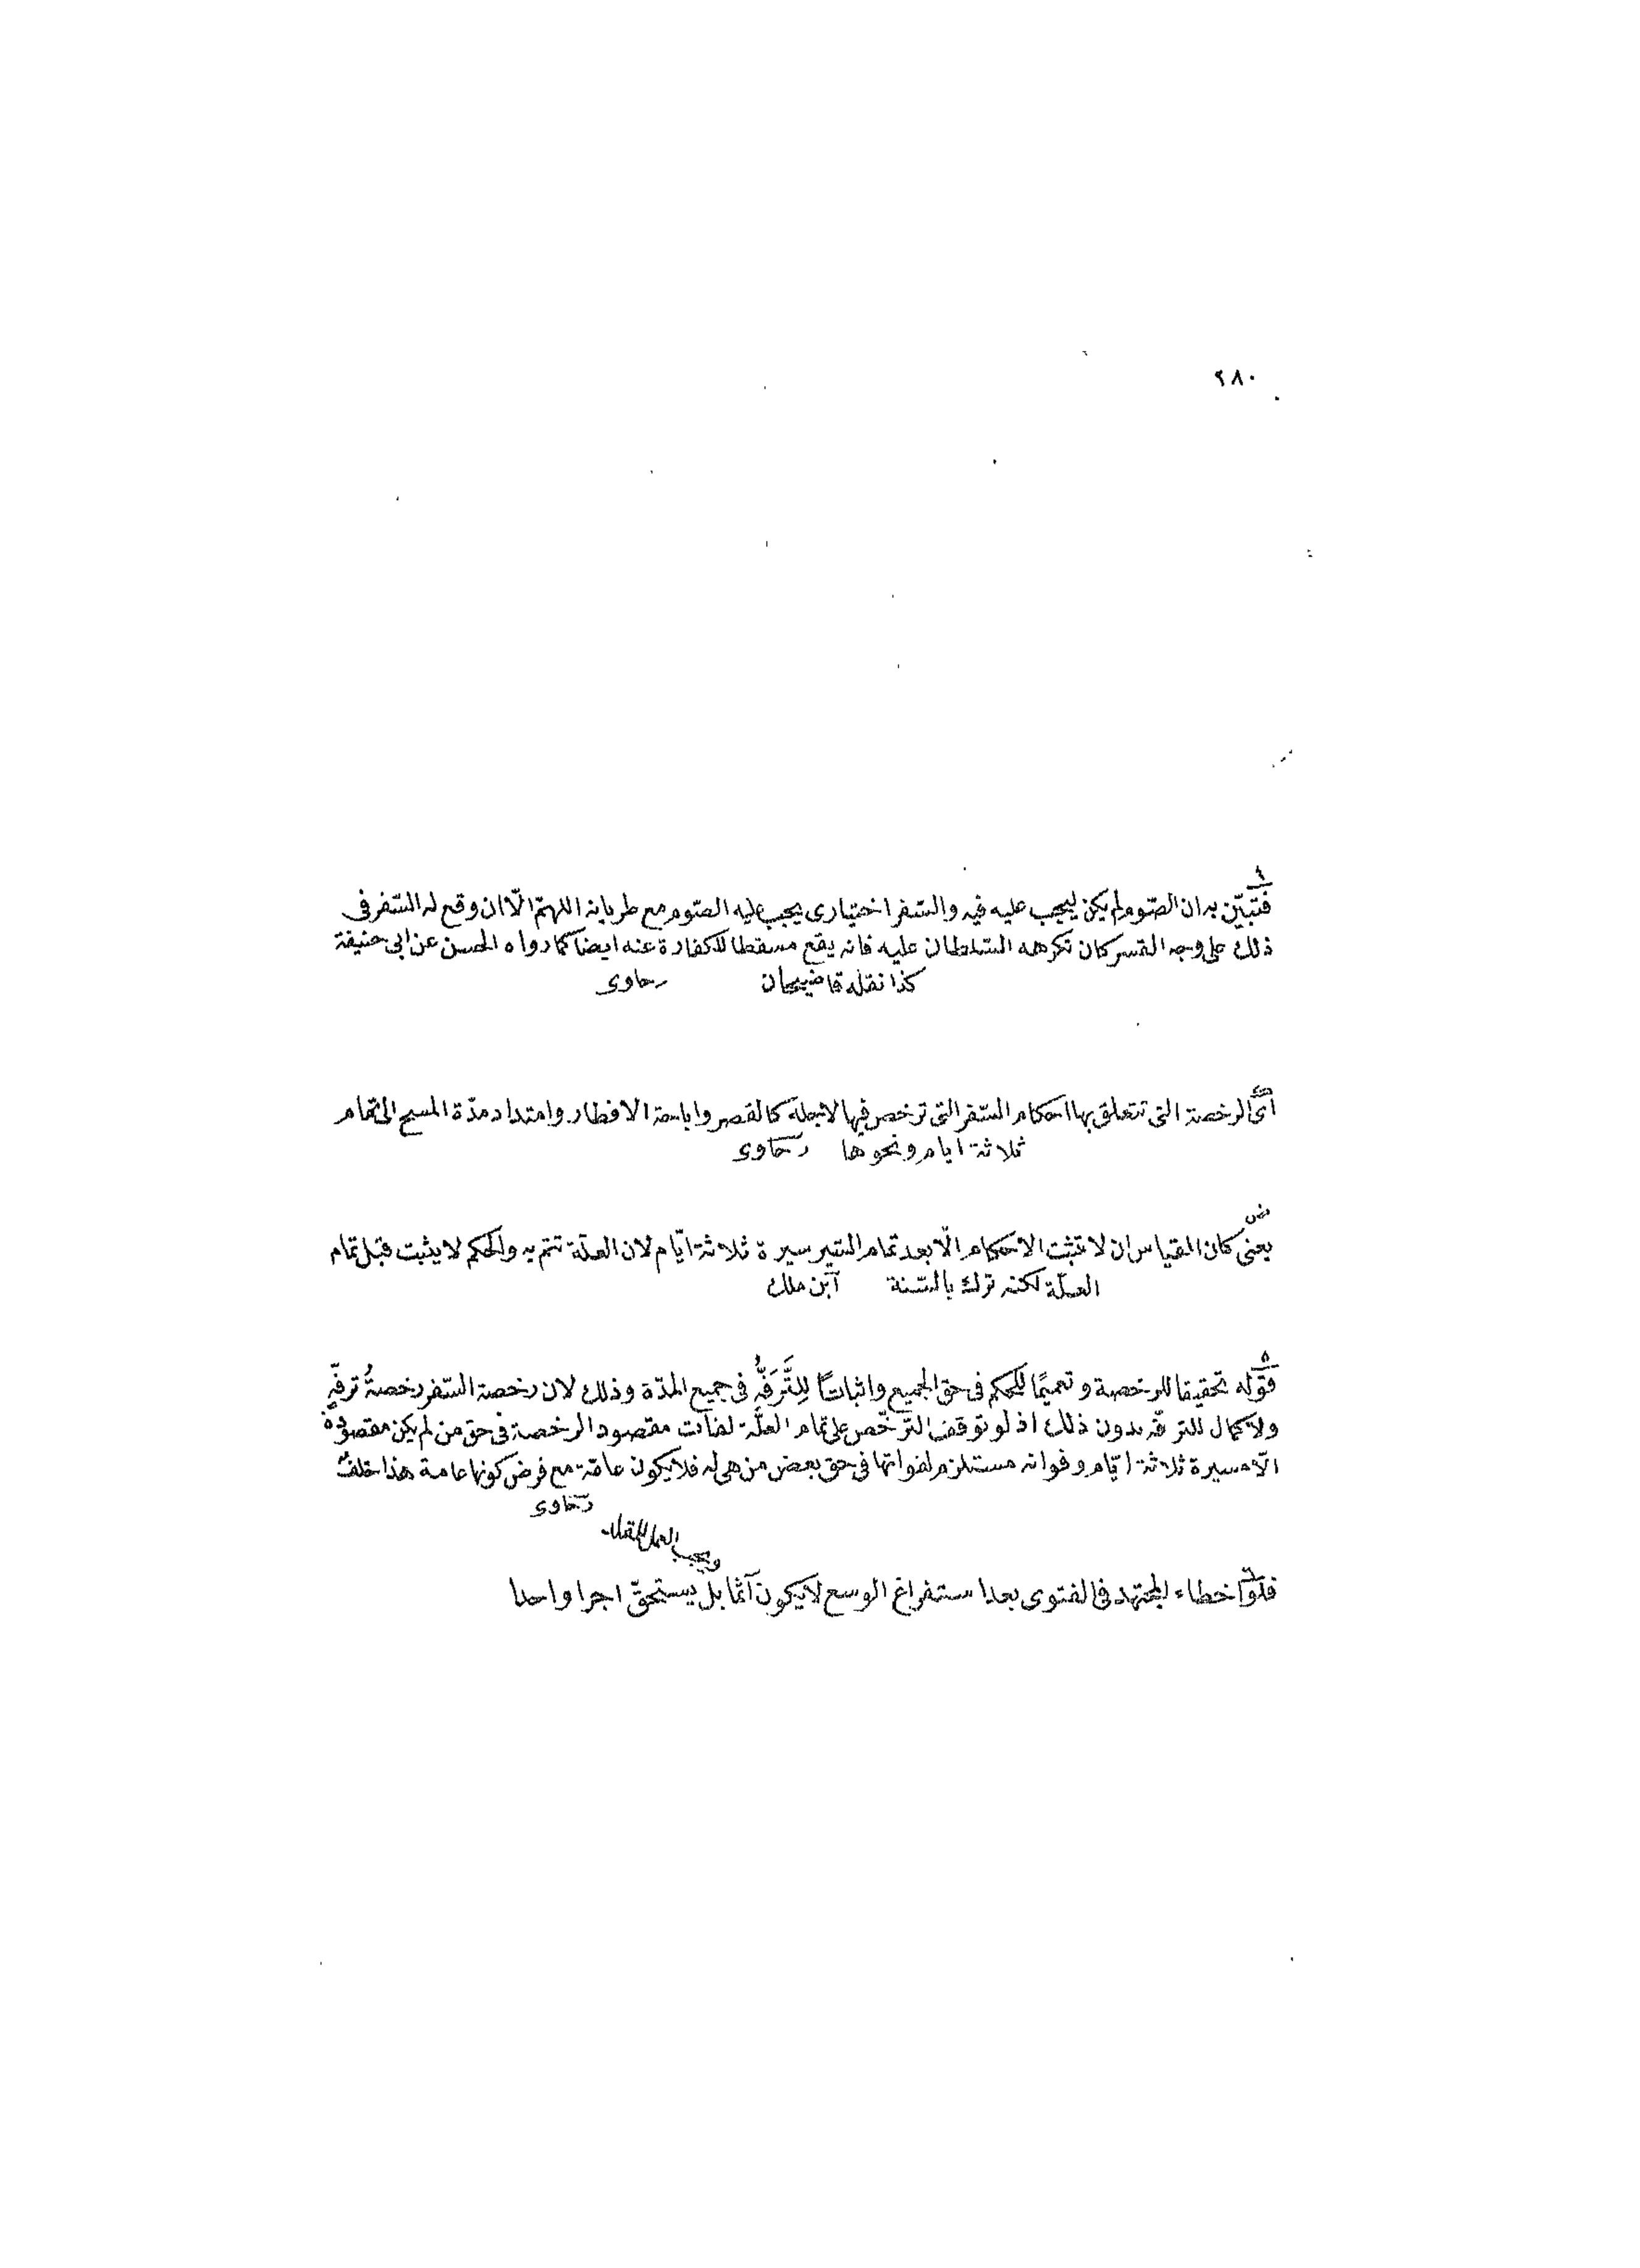 ٢٨٠
فتبيّن به ان الصّوم لم يكن ليجب عليه فيه والسّفر اختيارى يجب عليه الصّوم مع طريانه اللهمّ الّا ان وقع له السّفر فى
ذلك على وجه القسر كان تكرهه السّلطان عليه فانه يقع مسقطا للكفارة عنه ايضا كما رواه الحسن عن ابى حنيفة
كذا نقله قاضيخان رهاوى
اى الرخصة التى تتعلق بها احكام السّفر التى ترخص فيها لاجله كالقصر واباحة الافطار وامتداد مدّة المسح الى تمام
ثلاثة ايام ونحوها رهاوى
يعنى كان القياس ان لا تثبت الاحكام الّا بعد تمام السّير سيرة ثلاثة ايّام لان العلّة تتم به والحكم لا يثبت قبل تمام
العلّة لكنه ترك بالسّنة ابن ملك
٥
قوله تحقيقا للرخصة وتعميمًا للحكم فى حق الجميع واثباتًا لِلتَّرَفُّهِ فى جميع المدّة وذلك لان رخصة السّفر رخصةُ ترفّهٍ
ولا كمال للترفّه بدون ذلك اذ لو توقف التّرخّص على تمام العلّة لفات مقصود الرخصة فى حق من لم يكن مقصوده
الّا مسيرة ثلاثة ايّام وفواته مستلزم لفواتها فى حق بعض من هى له فلا يكون عامّة مع فرض كونها عامة هذا خلفٌ
رهاوى
ويجب العمل للمقلد
فلو اخطاء المجتهد فى الفتوى بعد استفراغ الوسع لا يكون آثما بل يستحقّ اجرا واحدا